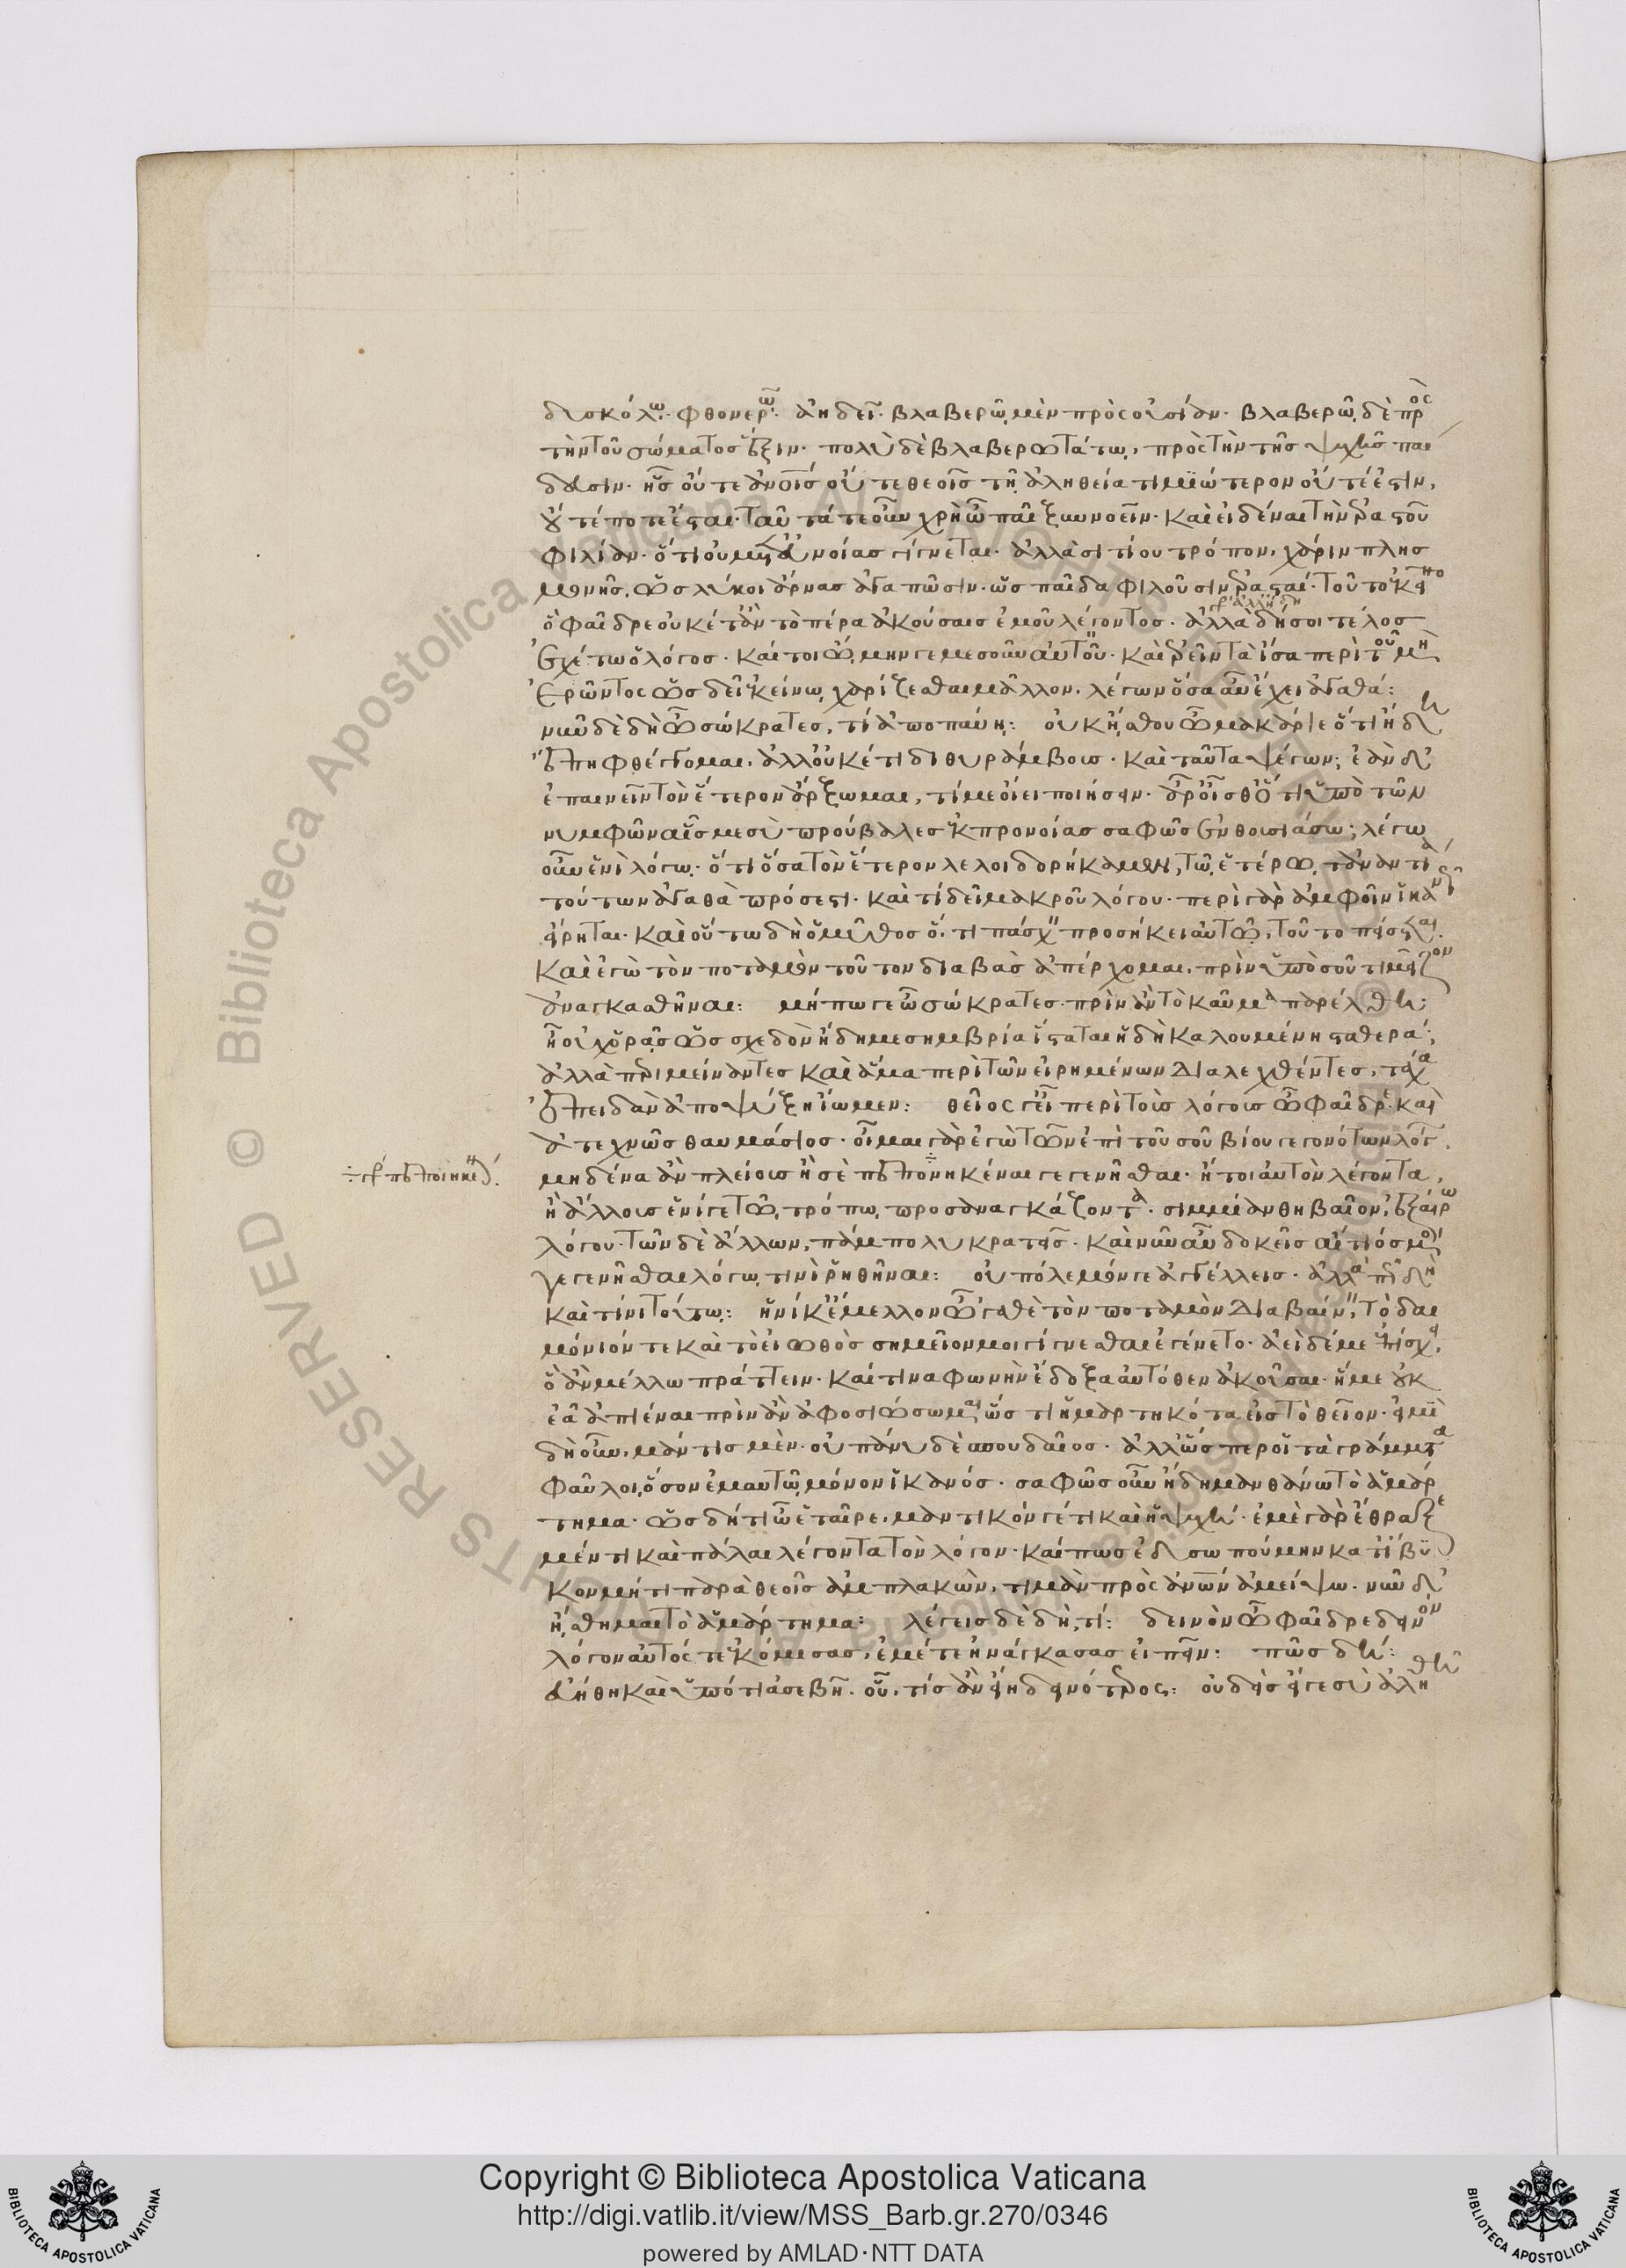 δυσκόλῳ· φθονερῷ· ἀηδεῖ· βλαβερῷ μὲν πρὸς οὐσίαν· βλαβερῷ δὲ πρὸς
τὴν τοῦ σώματος ἕξιν· πολὺ δὲ βλαβερωτάτῳ, πρὸς τὴν τῆς ψυχῆς παί
δευσιν· ἧς οὔτε ἀνοις οὔτε θεοῖς τῇ ἀληθείᾳ τιμιώτερον οὔτέ ἐστιν,
οὔτέ ποτε ἔσται· ταῦτά τε οὖν χρὴ ὦ παῖ ξυννοεῖν· καὶ εἰδέναι τὴν ἐραστοῦ
φιλίαν· ὅτι οὐ μετ' εὐνοίας γίγνεται· ἀλλὰ σιτίου τρόπον, χάριν πλησ
μονῆς, ὡς λύκοι ἄρνας ἀγαπῶσιν· ὣς παῖδα φιλοῦσιν ἐρασταί· τοῦτ' ἐκεῖνο
ὦ φαῖδρε οὐκέτ' ἂν τὸ πέρα ἀκούσαις ἐμοῦ λέγοντος· ἀλλὰ δή σοι τέλος
ἐχέτω ὁ λόγος· καίτοι ᾤμην γε μεσοῦν αὐτοῦ· καὶ ἐρεῖν τὰ ἴσα περὶ τοῦ μὴ
ἐρῶντος ὡς δεῖ ἐκείνῳ χαρίζεσθαι μᾶλλον, λέγων ὅσα αὖ ἔχει ἀγαθά:
νῦν δὲ δὴ ὦ σώκρατες, τί ἀποπαύῃ: οὐκ ᾔσθου ὦ μακάριε ὅτι ἤδη
ἔπη φθέγγομαι, ἀλλ' οὐκέτι διθυράμβοις· καὶ ταῦτα ψέγων; ἐὰν δ'
ἐπαινεῖν τὸν ἕτερον ἄρξωμαι, τί με οἴει ποιήσειν· ἆρ' οἶσθ' ὅτι ὑπὸ τῶν
νυμφῶν αἷς με σὺ προύβαλες ἐκ προνοίας σαφῶς ἐνθουσιάσω; λέγω
οὖν ἑνὶ λόγῳ· ὅτι ὅσα τὸν ἕτερον λελοιδορήκαμεν, τῷ ἑτέρῳ τἀναντία
τούτων ἀγαθὰ πρόσεστι· καὶ τί δεῖ μακροῦ λόγου· περὶ γὰρ ἀμφοῖν ἱκανῶς
εἴρηται· καὶ οὕτω δὴ ὁ μῦθος ὅ,τι πάσχειν προσήκει αὐτῷ, τοῦτο πείσεται.
καὶ ἐγὼ τὸν ποταμὸν τοῦτον διαβὰς ἀπέρχομαι, πρὶν ὑπὸ σοῦ τι μεῖζον
ἀναγκασθῆναι: μήπω γε ὦ σώκρατες· πρὶν ἂν τὸ καῦμα παρέλθῃ:
ἢ οὐχ ὁρᾷς ὡς σχεδὸν ἤδη μεσημβρία ἵσταται ἡ δὴ καλουμένη σταθερά;
ἀλλὰ περιμείναντες καὶ ἅμα περὶ τῶν εἰρημένων διαλεχθέντες, τάχα
ἐπειδὰν ἀποψύξῃ ἴωμεν: θεῖός γ' εἶ περὶ τοὺς λόγους ὦ φαῖδρε· καὶ
ἀτεχνῶς θαυμάσιος· οἶμαι γὰρ ἐγὼ τῶν ἐπὶ τοῦ σοῦ βίου γεγονότων λόγ.
÷ γρ πεποιηκέν.
μηδένα ἂν πλείους ἢ σὲ πεπονηκέναι γεγενῆσθαι· ἤτοι αὐτὸν λέγοντα,
ἢ ἄλλους ἑνί γέ τῳ τρόπῳ προσαναγκάζοντα· σιμμίαν θηβαῖον, ἐξαιρῶ
λόγου· τῶν δὲ ἄλλων, πάμπολυ κρατεῖς· καὶ νῦν αὖ δοκεῖς αἴτιός μοι
γεγενῆσθαι λόγῳ τινὶ ῥηθῆναι: οὐ πόλεμόν γε ἀγγέλλεις· ἀλλὰ πῶς δὴ
καὶ τίνι τούτῳ: ἡνίκ' ἔμελλον ὦ 'γαθὲ τὸν ποταμὸν διαβαίνειν, τὸ δαι
μόνιόν τε καὶ τὸ εἰωθὸς σημεῖόν μοι γίγνεσθαι ἐγένετο· ἀεὶ δέ με ἐπίσχει,
ὃ ἂν μέλλω πράττειν· καί τινα φωνὴν ἔδοξα αὐτόθεν ἀκοῦσαι· ἥ με οὐκ
ἐᾷ ἀπιέναι πρὶν ἂν ἀφοσιώσωμαι, ὥς τι ἡμαρτηκότα εἰς τὸ θεῖον· εἰμὶ
δὴ οὖν, μάντις μέν· οὐ πάνυ δὲ σπουδαῖος· ἀλλ' ὥσπερ οἱ τὰ γράμματα
φαῦλοι, ὅσον ἐμαυτῷ μόνον ἱκανός· σαφῶς οὖν ἤδη μανθάνω τὸ ἁμάρ
τημα· ὡς δή τι ὦ ἑταῖρε, μαντικόν γέ τι καὶ ἡ ψυχή· ἐμὲ γὰρ ἔθραξε
μέν τι καὶ πάλαι λέγοντα τὸν λόγον· καί πως ἐδυσωπούμην κατ' ἴβυ
κον μή τι παρὰ θεοῖς ἀμπλακὼν, τιμὰν πρὸς ἀνων ἀμείψω· νῦν δ'
ᾔσθημαι τὸ ἁμάρτημα: λέγεις δὲ δὴ τί: δεινὸν ὦ φαῖδρε δεινὸν
λόγον αὐτός τε ἐκόμισας, ἐμέ τε ἠνάγκασας εἰπεῖν: πῶς δή:
εὐήθη καὶ ὑπό τι ἀσεβῆ· οὗ, τίς ἂν εἴη δεινότερος: οὐδεὶς εἴ γε σὺ ἀληθῆ